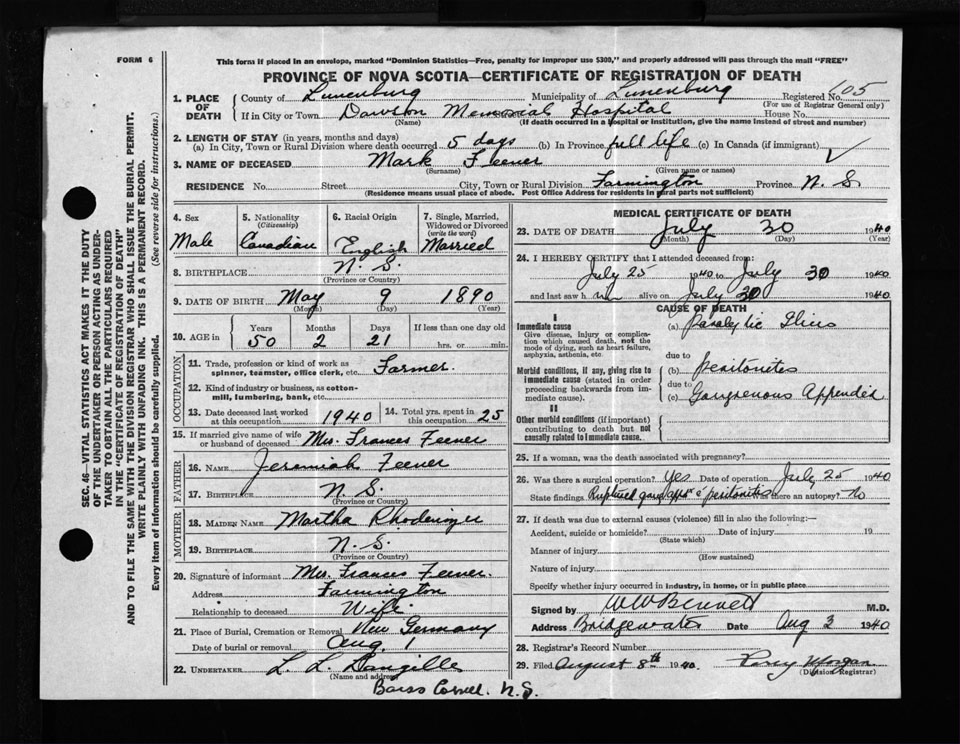 FORM 6
This form if placed in an envelope, marked "Dominion Statistics—Free, penalty for improper use $300," and properly addressed will pass through the mail "FREE"
PROVINCE OF NOVA SCOTIA—CERTIFICATE OF REGISTRATION OF DEATH
1. PLACE OF DEATH County of Lunenburg Municipality of Lunenburg Registered No. 605
(For use of Registrar General only)
If in City or Town Dawson Memorial Hospital House No.
(Name) (If death occurred in a hospital or institution, give the name instead of street and number)
2. LENGTH OF STAY (in years, months and days)
(a) In City, Town or Rural Division where death occurred 5 days (b) In Province full life (c) In Canada (if immigrant)
3. NAME OF DECEASED Mark Feener
(Surname) (Given name or names)
RESIDENCE No. Street City, Town or Rural Division Farmington Province N. S.
(Residence means usual place of abode. Post Office Address for residents in rural parts not sufficient)
4. Sex Male
5. Nationality (Citizenship) Canadian
6. Racial Origin English
7. Single, Married, Widowed or Divorced (write the word) Married
8. BIRTHPLACE N. S.
(Province or Country)
9. DATE OF BIRTH May 9 1890
(Month) (Day) (Year)
10. AGE in Years 50 Months 2 Days 21 If less than one day old hrs. or min.
OCCUPATION
11. Trade, profession or kind of work as spinner, teamster, office clerk, etc. Farmer.
12. Kind of industry or business, as cotton-mill, lumbering, bank, etc.
13. Date deceased last worked at this occupation 1940
14. Total yrs. spent in this occupation 25
15. If married give name of wife or husband of deceased Mrs. Frances Feener
FATHER
16. NAME Jeremiah Feener
17. BIRTHPLACE N. S.
(Province or Country)
MOTHER
18. MAIDEN NAME Martha Rhodenizer
19. BIRTHPLACE N. S.
(Province or Country)
20. Signature of informant Mrs. Frances Feener.
Address Farmington
Relationship to deceased Wife
21. Place of Burial, Cremation or Removal New Germany
Date of burial or removal Aug. 1
22. UNDERTAKER L. L.
(Name and address)
N. S.
MEDICAL CERTIFICATE OF DEATH
23. DATE OF DEATH July 30 1940
(Month) (Day) (Year)
24. I HEREBY CERTIFY that I attended deceased from:
July 25 1940 to July 30 1940
and last saw h im alive on July 30 1940
CAUSE OF DEATH
I
Immediate cause
Give disease, injury or complication which caused death, not the mode of dying, such as heart failure, asphyxia, asthenia, etc.
(a) Paralytic Ilius
due to
Morbid conditions, if any, giving rise to immediate cause (stated in order proceeding backwards from immediate cause).
(b) peritonitis
due to
(c) Gangrenous Appendix
II
Other morbid conditions (if important) contributing to death but not causally related to immediate cause.
25. If a woman, was the death associated with pregnancy?
26. Was there a surgical operation? Yes Date of operation July 25 1940
State findings Ruptured gang app c̄ peritonitis Was there an autopsy? No
27. If death was due to external causes (violence) fill in also the following:—
Accident, suicide or homicide? Date of injury 19
(State which)
Manner of injury
(How sustained)
Nature of injury
Specify whether injury occurred in industry, in home, or in public place
Signed by W W Bennett M.D.
Address Bridgewater Date Aug 3 1940
28. Registrar's Record Number
29. Filed August 8th 1940. Percy Morgan
(Division Registrar)
SEC. 46—VITAL STATISTICS ACT MAKES IT THE DUTY
OF THE UNDERTAKER OR PERSON ACTING AS UNDER-
TAKER TO OBTAIN ALL THE PARTICULARS REQUIRED
IN THE "CERTIFICATE OF REGISTRATION OF DEATH"
AND TO FILE THE SAME WITH THE DIVISION REGISTRAR WHO SHALL ISSUE THE BURIAL PERMIT.
WRITE PLAINLY WITH UNFADING INK. THIS IS A PERMANENT RECORD.
Every item of information should be carefully supplied. (See reverse side for instructions.)